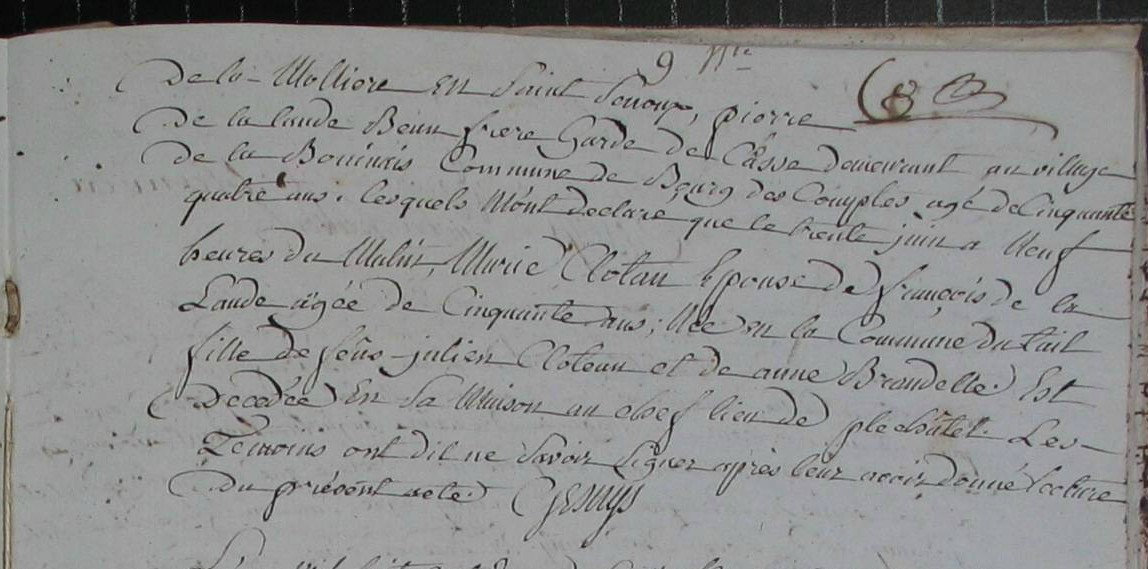 9 Nre
De la Molliere En Saint Senoux, pierre
De la lande Beau frere Garde de Chasse demeurant au village
de la Bouinais Commune de Bourg des Comples, agé de Cinquante
quatre ans. lesquels M'ont declaré que le trente juin a Neuf
heures du Matin, Marie Clotau Epouse de françois de la
Lande agée de Cinquante ans, Née en la Commune du tail
fille de feûs julien Cloteau et de anne Brandelle. Est
Decedée En Sa Maison au chef lieu de plechâtel. Les
Témoins ont dit ne Savoir Signer après leur avoir donné lecture
Du présent acte.